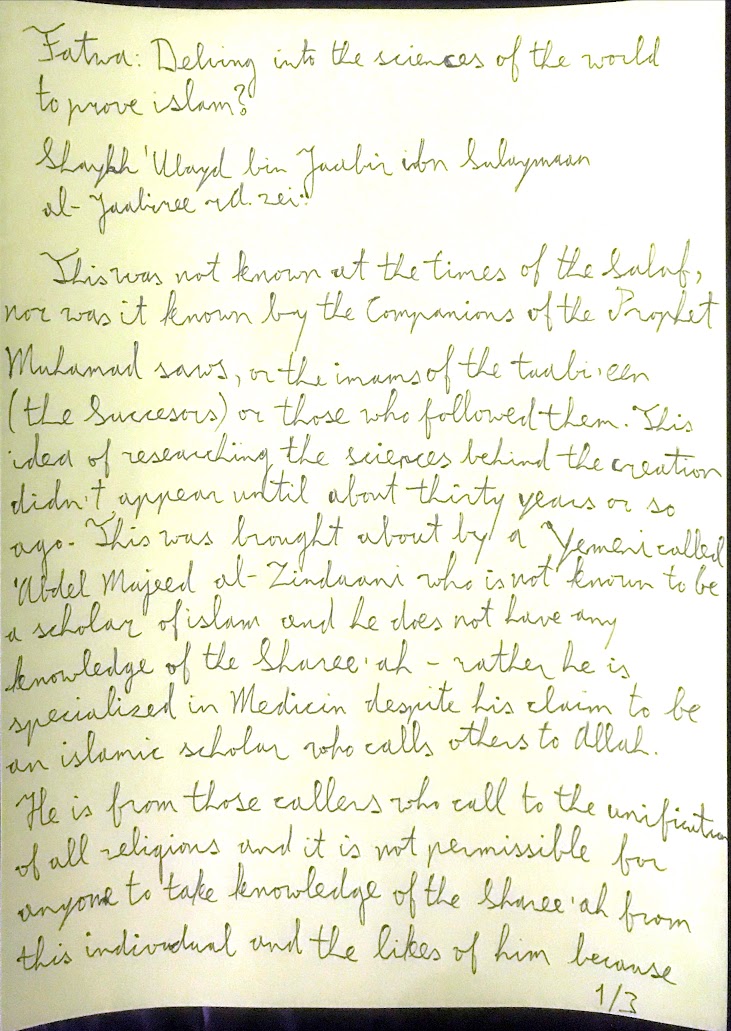 Fatwa: Delving into the sciences of the world
to prove islam?
Shaykh 'Ubayd bin Jaabir ibn Sulaymaan
al-Jaabiree rd. zei:
This was not known at the times of the Salaf,
nor was it known by the Companions of the Prophet
Muhamad saws, or the imams of the taabi'een
(the Succesors) or those who followed them. This
idea of researching the sciences behind the creation
didn't appear until about thirty years or so
ago. This was brought about by a Yemeni called
'Abdel Majeed al-Zindaani who is not known to be
a scholar of islam and he does not have any
knowledge of the Sharee'ah - rather he is
specialized in Medicin despite his claim to be
an islamic scholar who calls others to Allah.
He is from those callers who call to the unification
of all religions and it is not permissible for
anyone to take knowledge of the Sharee'ah from
this individual and the likes of him because
1/3